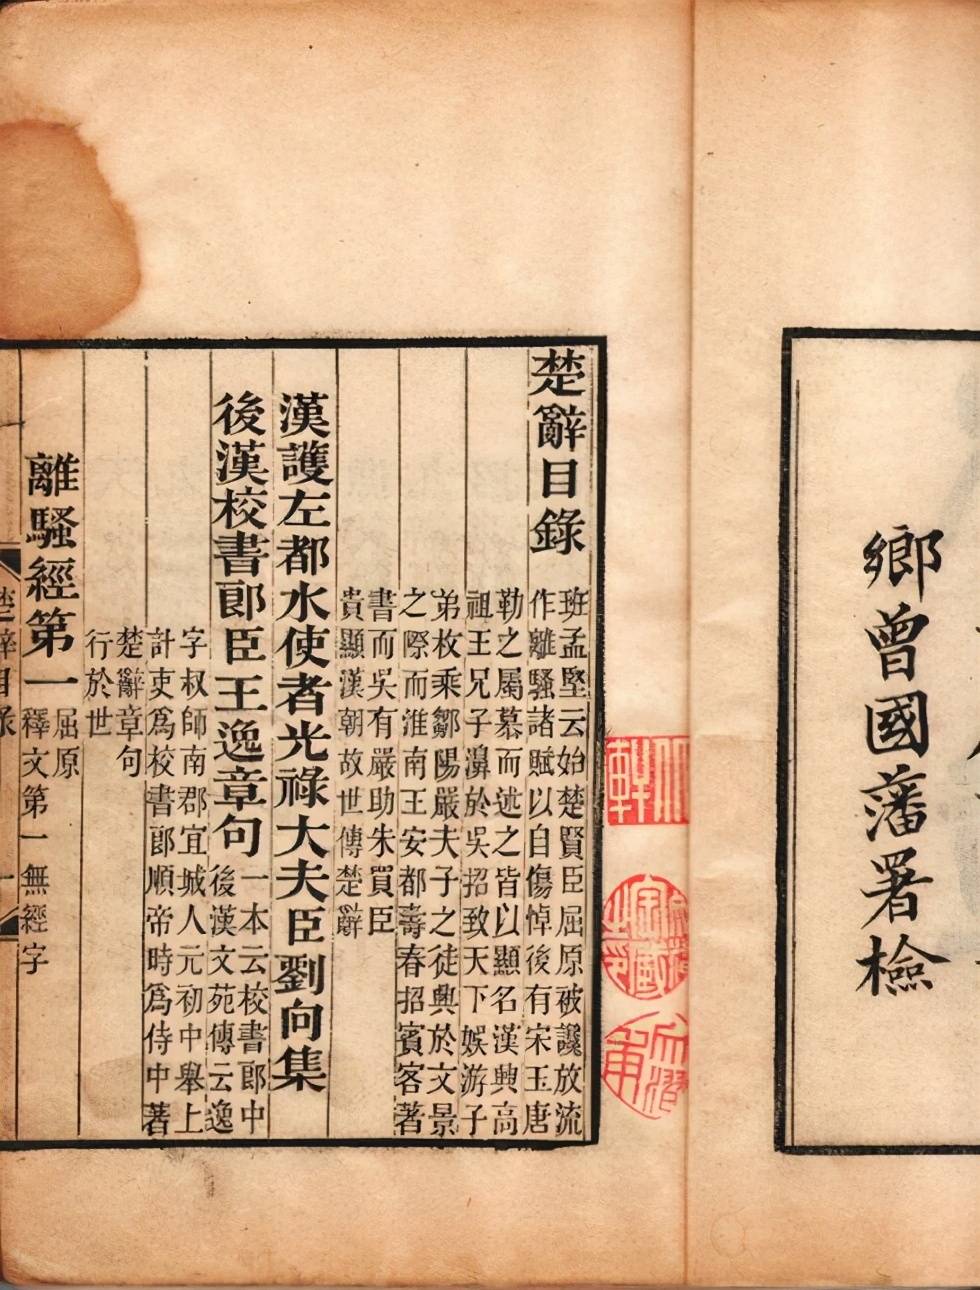 鄉曾國藩署檢
楚辭目錄
班孟堅云始楚賢臣屈原被讒放流
作離騷諸賦以自傷悼後有宋玉唐
勒之屬慕而述之皆以顯名漢興高
祖王兄子濞於吳招致天下娛游子
弟枚乘鄒陽嚴夫子之徒興於文景
之際而淮南王安都壽春招賓客著
書而吳有嚴助朱買臣
貴顯漢朝故世傳楚辭
漢護左都水使者光祿大夫臣劉向集
後漢校書郎臣王逸章句
一本云校書郎中
後漢文苑傳云逸
字叔師南郡宜城人元初中舉上
計吏爲校書郎順帝時爲侍中著
楚辭章句
行於世
離騷經第一
屈原
釋文第一無經字
楚辭目錄
一